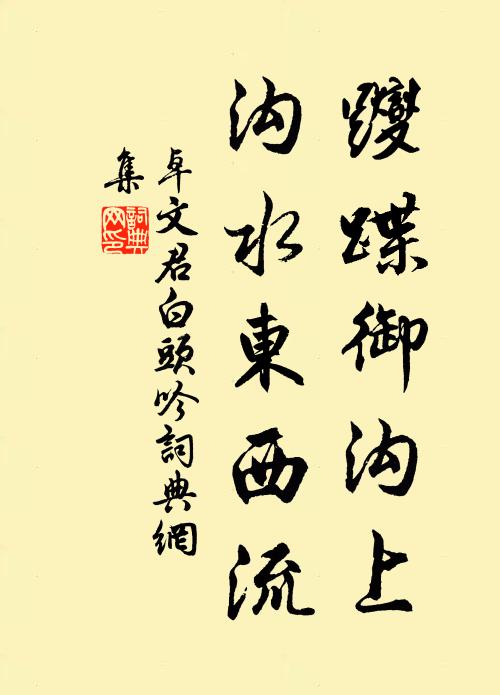 躞蹀御沟上
沟水東西流
卓文君白頭吟詞典網
集
詞典網印